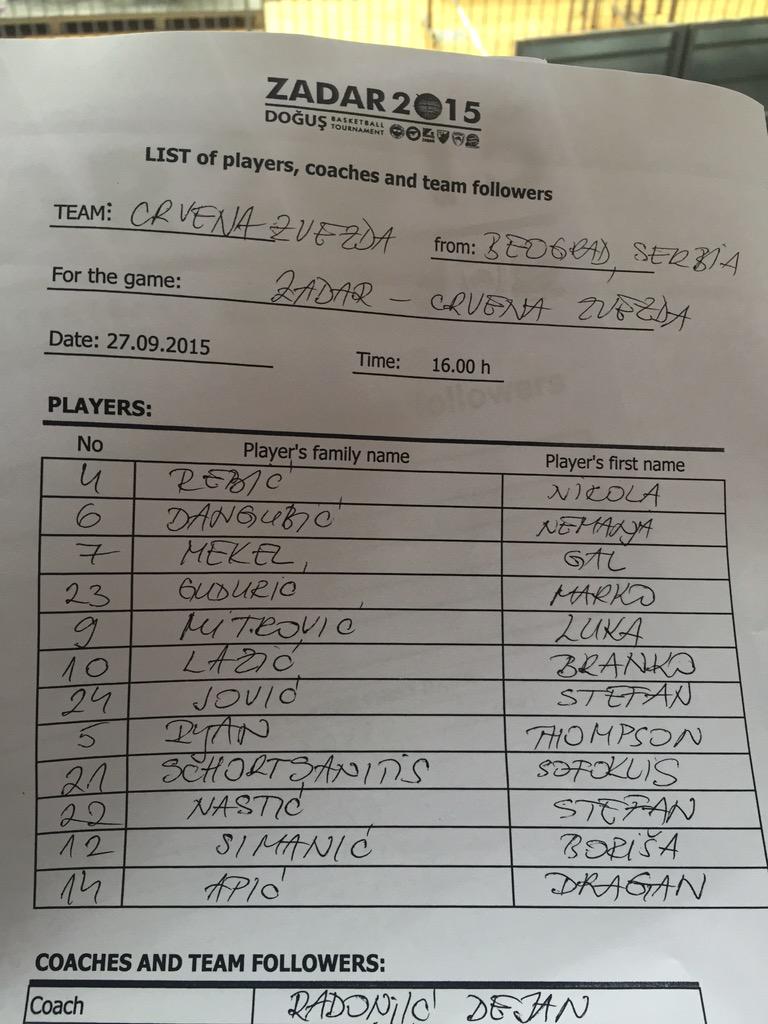 ZADAR 2015
DOĞUŞ BASKETBALL TOURNAMENT
LIST of players, coaches and team followers
TEAM: CRVENA ZVEZDA from: BEOGRAD, SERBIA
For the game: ZADAR - CRVENA ZVEZDA
Date: 27.09.2015 Time: 16.00 h
PLAYERS:
No Player's family name Player's first name
4 REBIĆ NIKOLA
6 DANGUBIĆ NEMANJA
7 MEKEL GAL
23 GUDURIĆ MARKO
9 MITROVIĆ LUKA
10 LAZIĆ BRANKO
24 JOVIĆ STEFAN
5 RYAN THOMPSON
21 SCHORTSANITIS SOFOKLIS
22 NASTIĆ STEFAN
12 SIMANIĆ BORIŠA
14 APIĆ DRAGAN
COACHES AND TEAM FOLLOWERS:
Coach RADONJIĆ DEJAN